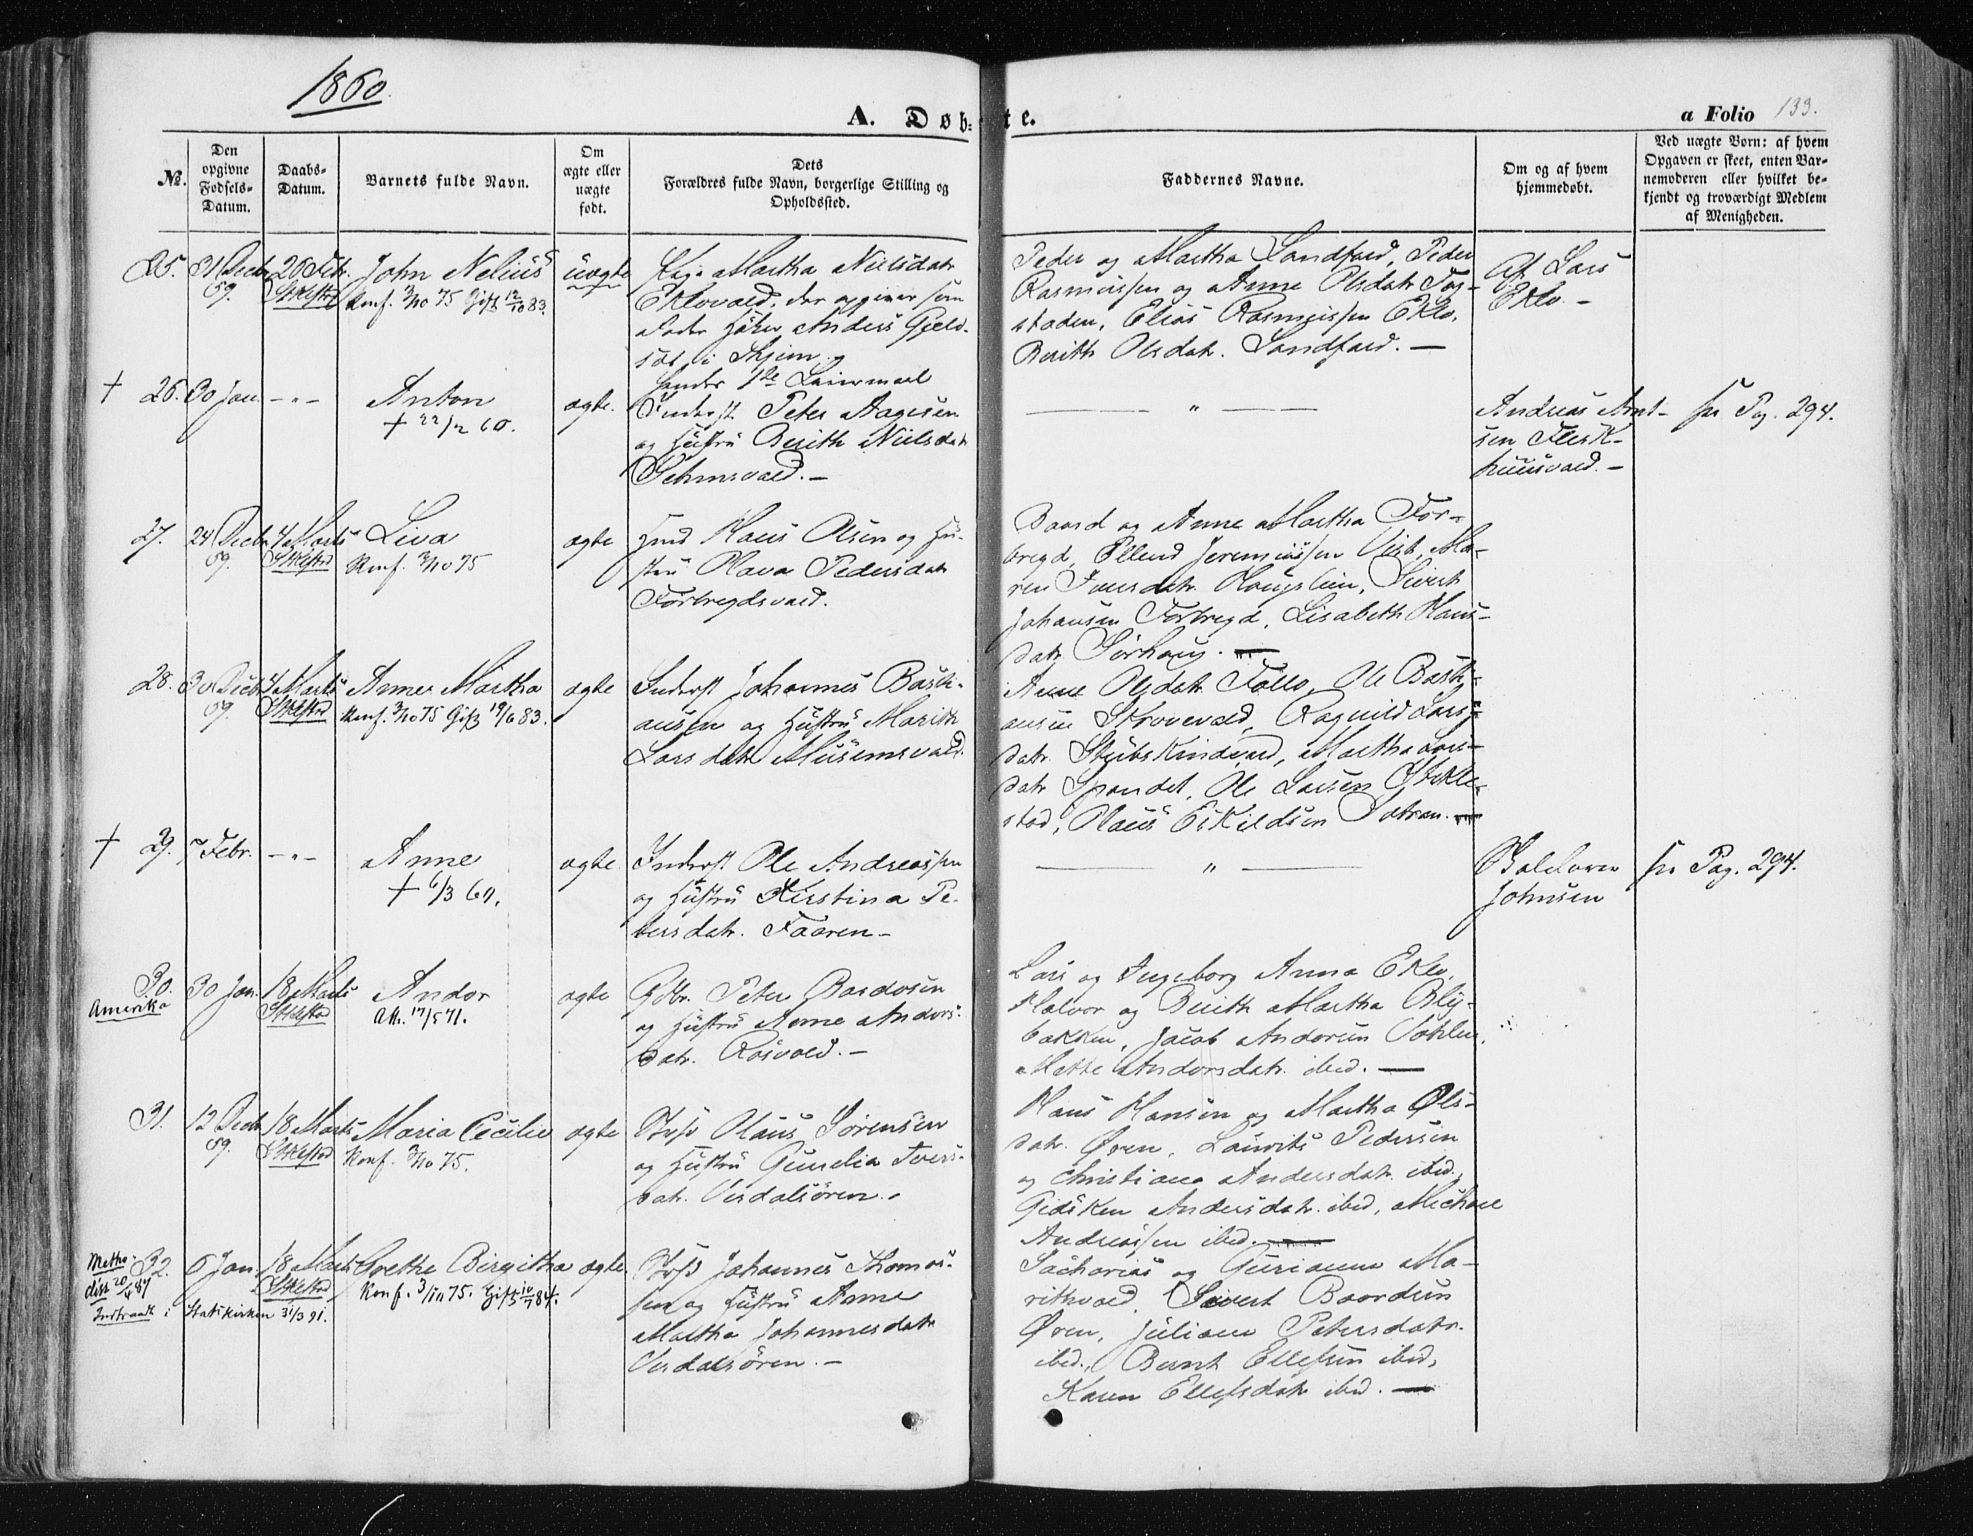 1860.
A. Døb-te.
a Folio 133.
№.
Den opgivne Fødsels-Datum.
Daabs-Datum.
Barnets fulde Navn.
Om ægte eller uægte født.
Dets Forældres fulde Navn, borgerlige Stilling og Opholdssted.
Faddernes Navne.
Om og af hvem hjemmedøbt.
Ved uægte Børn: af hvem Opgaven er skeet, enten Barnemoderen eller hvilket bekjendt og troværdigt Medlem af Menigheden.
25. 31 Decbr 59. 26 Feb. Stklestad
John Nelius
Konf. 3/10 75 Gift 12/10 83.
uægte
Pige Martha Nielsdatr
Eklovald, der opgiver som
Fader Anders
i Skjem
Peder og Martha Sandfærd, Peder
Rasmussen og Anne Olsdatr
staden, Elias Rasmussen Eklo,
Berith Olsdatr. Sandfærd. —
Af Lars
Eklo. —
† 26. 30 Jan. -"-
Anton
† 22/2 60.
ægte.
Inderst Peter Aagesen
og Hustru Berith Nielsdatr
"
Andreas Arnt-
sen Flesk-
huusvald. —
Pag. 294.
27. 24 Decbr 59. 4 Marts Stklestad
Liva
Konf. 3/10 75
ægte
Hmd Hans Olsen og Hu-
stru Olava Pedersdatr
Forbregdsvald.
Baard og Anne Martha For-
bregd, Ellend Jeremiassen Vist, Ma-
ren Iversdatr. Haugslien, Sivert
Johansen Forbregd, Lisabeth Hans-
datr Sørhaug. —
28. 30 Decbr 59. 4 Marts Stklestad
Anne Martha
Konf. 3/10 75 Gift 19/6 83.
ægte
Inderst Johannes Basti-
ansen og Hustru Marith
Larsdatr Musumsvald.
Anne Olsdatr Follo, Ole Basti-
ansen Skrovevald, Ragnild Lars-
datr. Stubskindvald, Martha Lars-
datr Spandet, Ole Larsen Stkle-
stad, Olaus Eskildsen —
† 29. 7 Febr. -"-
Anne
† 6/3 60.
ægte.
Inderst Ole Andreassen
og Hustru Kirstina Pe-
tersdatr. Faaren —
"
Baldever
Johnsen
Pag. 294.
30. 30 Jan. 18 Marts Stklestad
Amerika
Andor
Att. 17/5 71.
ægte
Gdbr. Peter Bardosen
og Hustru Anne Anders-
datr. Rosvold. —
Lars og Ingeborg Anna Eklo,
Halvor og Berith Martha Bly-
bakken, Jacob Andersen
Mette Andorsdatr. ibid. —
31. 12 Decbr 59. 18 Marts Stklestad
Maria Cecilie
Konf. 3/10 75.
ægte
Olaus Sørensen
og Hustru Gunelia Ivers-
datr. Verdalsøren.
Hans Hansen og Martha Ols-
datr. Øren, Lauvits Pedersen
og Christiana Andersdatr. ibid.
Gidsken Andersdatr. ibid, Michael
Andreassen ibid. —
32. 6 Jan. 18 Marts Stklestad
Metho-
dist 20/4 87
Indtraadt i Statskirken 31/3 91.
Grethe Birgitha
Konf. 3/10 75. Gift 10/7 84.
ægte.
Johannes Thomas-
sen og Hustru Anne
Martha Johannesdatr
Verdalsøren. —
Sacharias og Gurianna Ma-
rithvald, Sivert Baardsen
Øren, Juliana Petersdatr.
ibid., Bernt Ellefsen ibid,
Karen Ellefsdatr ibid. —